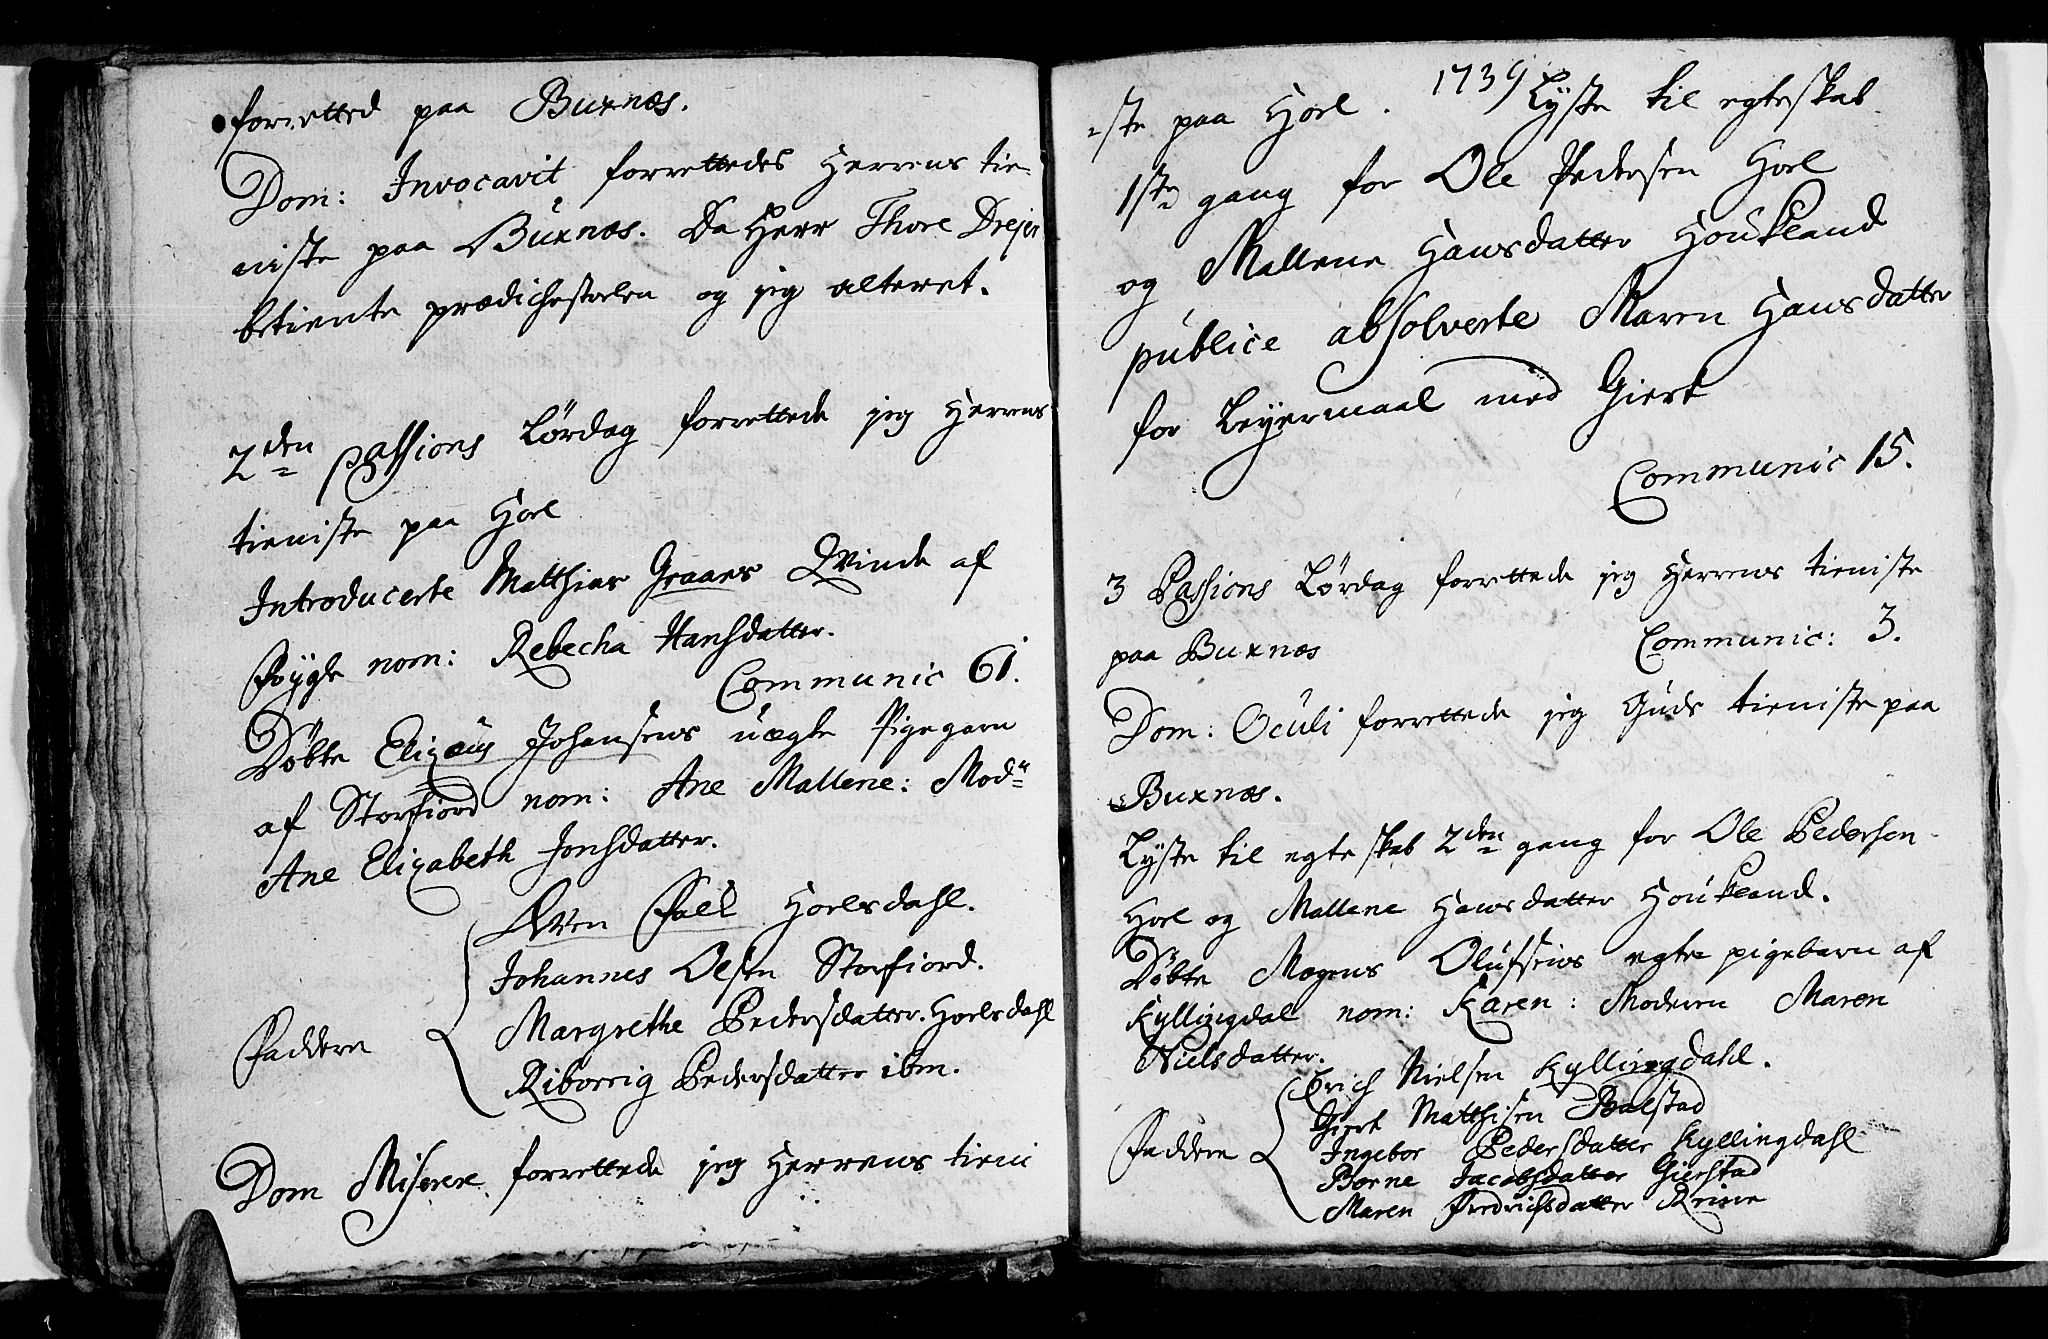 forretted paa Buxnæs.
Dom: Invocavit forrettedes Herrens tie-
niste paa Buxnæs. Da Herr Thore Drejer
betiente prædichestoelen og jeg alteret.
2den passions Lørdag forrettede jeg Herrens
tieniste paa Hoel
Introducerte Matthias Graaes Qvinde af
nom: Rebecha Hansdatter.
Communic 61.
Døbte Elizæus Johansens uægte Pigebarn
af Storfiord nom: Ane Mallene: Modr
Ane Elizabeth Jonsdatter.
Hoelsdahl.
Johannes Olsen Storfiord.
Faddere Margrethe Pedersdatter. Hoelsdahl
Riborrig Pedersdatter ibm.
Dom Miserere forrettede jeg Herrens tieni
1739
-ste paa Hoel. Lyste til egteskab
1ste gang for Ole Pedersen Hoel
og Mallene Hansdatter Houkland
publice absolverte Maren Hansdatter
for Leyermaal med Giert
Communic 15.
3 Passions Lørdag forrettede jeg Herrens tieniste
paa Buxnæs Communic: 3.
Dom: Oculi forrettede jeg Guds tieniste paa
Buxnæs.
Lyste til egteskab 2den gang for Ole Pedersen
Hoel og Mallene Hansdatter Houkland.
Døbte Mogens Olufsens egte pigebarn af
Kyllingdal nom: Karen: Moderen Maren
Nielsdatter.
Erich Nielsen Kyllingdahl.
Giert Matthisen Balstad
Faddere Ingebor Pedersdatter Kyllingdahl
Børne Jacobsdatter Gierstad
Maren Fredrichsdatter Reine